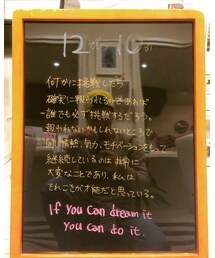 12月10日
何かに挑戦したら
確実に報われるのであれば
誰でも必ず挑戦するだろう。
報われないかもしれないところで
同じ情熱、気力、モチベーションをもって
継続しているのは非常に
大変なことであり、私は
それこそが才能だと思っている。
If you can dream it
you can do it.